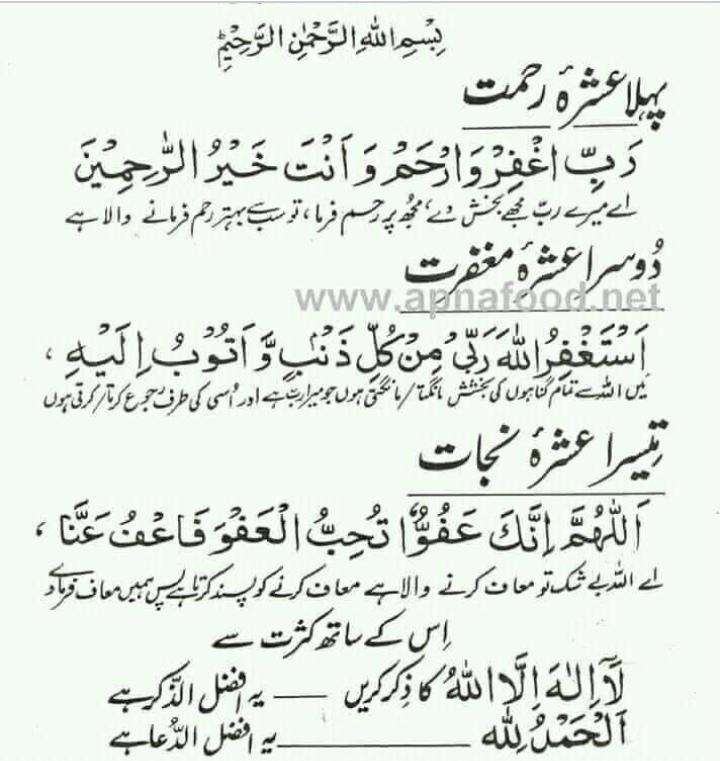 بِسْمِ اللهِ الرَّحْمٰنِ الرَّحِيْمِ
پہلا عشرۂ رحمت
رَبِّ اغْفِرْ وَارْحَمْ وَ اَنْتَ خَيْرُ الرّٰحِمِيْنَ
اے میرے ربّ مجھے بخش دے، مجھ پر رحم فرما، تو سب سے بہتر رحم فرمانے والا ہے
دُوسرا عشرۂ مغفرت
www.apnafood.net
اَسْتَغْفِرُ اللهَ رَبِّىْ مِنْ كُلِّ ذَنْۢبٍ وَّ اَتُوْبُ اِلَيْهِ ،
میں اللہ سے تمام گناہوں کی بخشش مانگتا/مانگتی ہوں جو میرا ربّ ہے اور اُسی کی طرف رجوع کرتا/کرتی ہوں
تیسرا عشرۂ نجات
اَللّٰهُمَّ اِنَّكَ عَفُوٌّ تُحِبُّ الْعَفْوَ فَاعْفُ عَنَّا ،
اے اللہ بے شک تو معاف کرنے والا ہے معاف کرنے کو پسند کرتا ہے پس ہمیں معاف فرما دے
اِس کے ساتھ کثرت سے
لَآ اِلٰهَ اِلَّا اللهُ کا ذکر کریں — یہ افضل الذَّکر ہے
اَلْحَمْدُ لِلّٰه ——— یہ افضل الدُّعا ہے